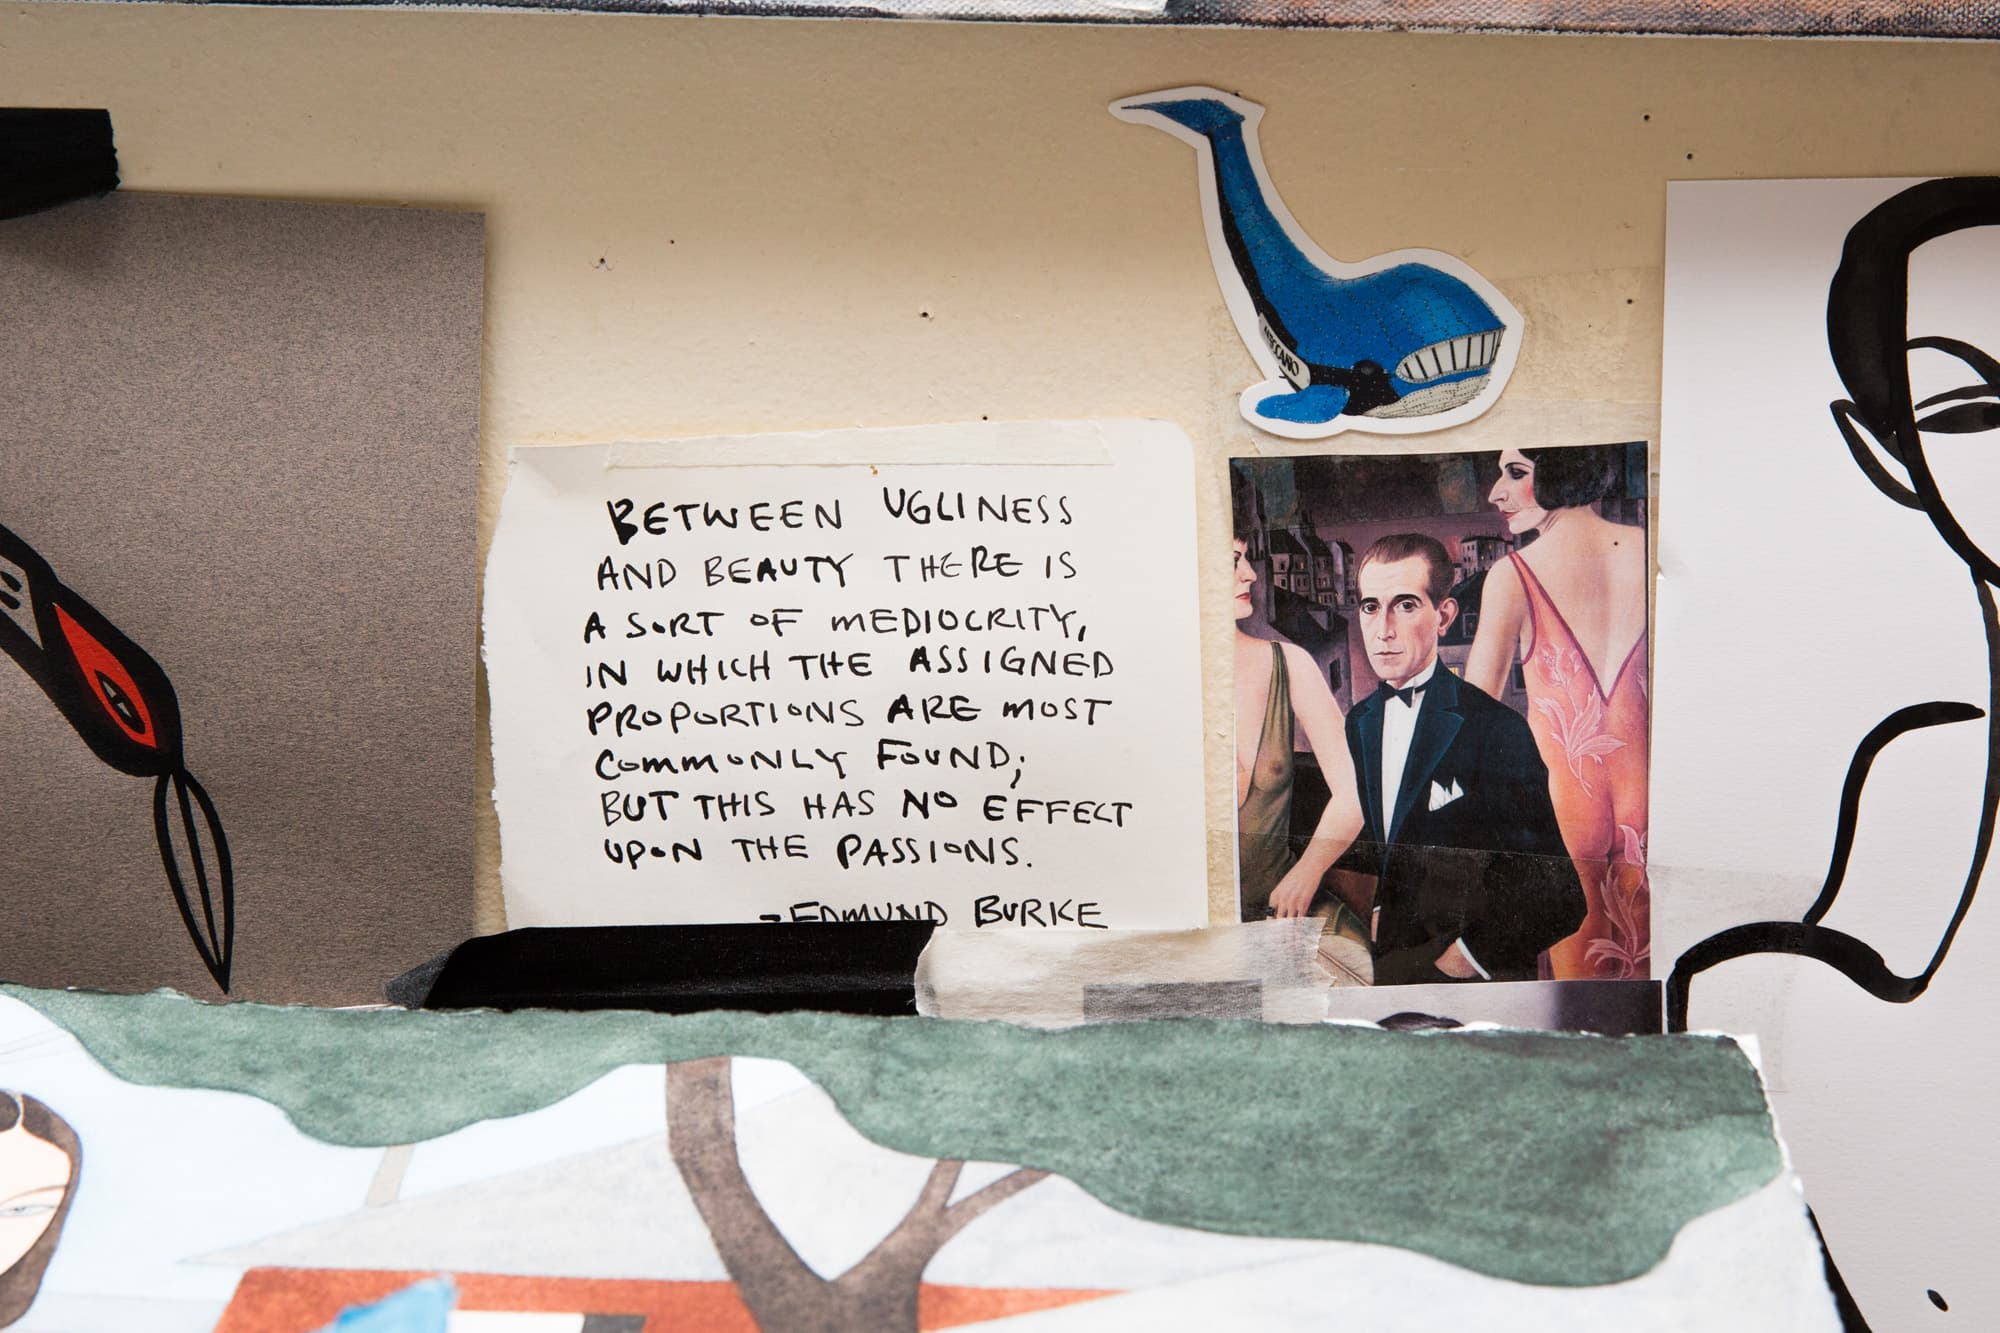 BETWEEN UGLINESS
AND BEAUTY THERE IS
A SORT OF MEDIOCRITY,
IN WHICH THE ASSIGNED
PROPORTIONS ARE MOST
COMMONLY FOUND;
BUT THIS HAS NO EFFECT
UPON THE PASSIONS.
-EDMUND BURKE
MECCANO